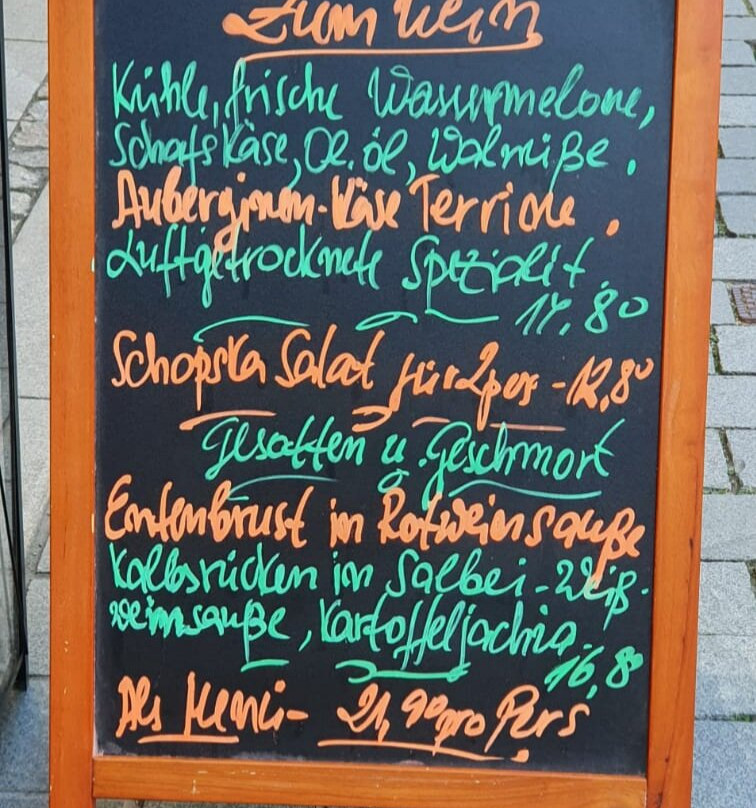 Zum Wein
Kühle, frische Wassermelone,
Schafskäse, Ol. öl, Walnüße.
Auberginen-Käse Terrine.
Luftgetrocknete Spezialit.
17,80
Schopska Salat für 2 pers - 12,80
Gesotten u. Geschmort
Entenbrust in Rotweinsauße
Kalbsrücken in Salbei-Weiß-
weinsauße,
16,80
Als Menü- 21,90 pro Pers